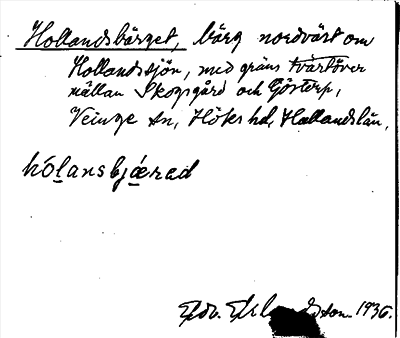 Hollandsbärget, bärg nordväst om
Hollandssjön, med gräns tvärtöver
mellan Skogsgård och Göstorp,
Veinge sn, Höks hd, Hallands län.
hólansbjærad
Edv. 1935.